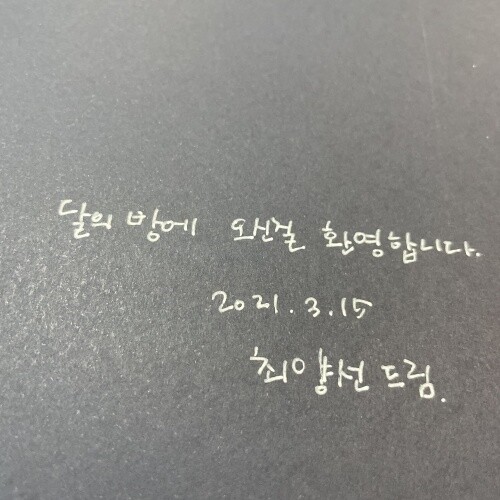 달의 방에 오신걸 환영합니다.
2021.3.15
최양선 드림.